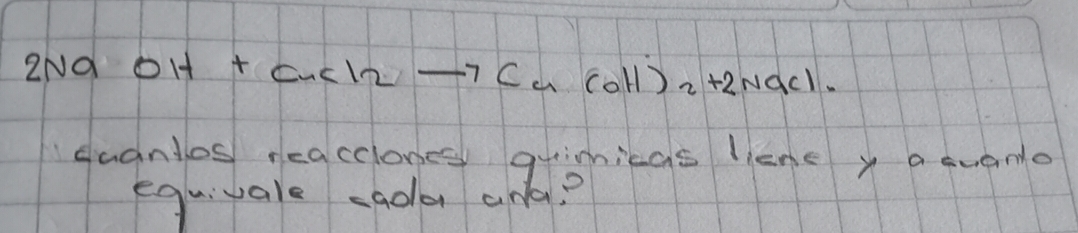 2Na OH + CuCl2 → Cu (OH)2 +2NaCl.
cuantos reacciones quimicas tiene y a cuanto
equivale cada una?